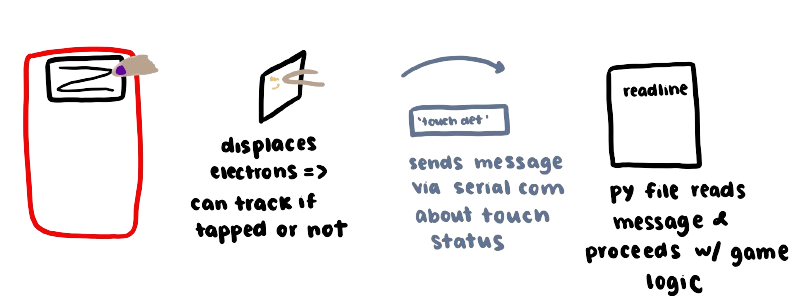 displaces
electrons =>
can track if
tapped or not
'touch det'
sends message
via serial com
about touch
status
readline
py file reads
message &
proceeds w/ game
logic